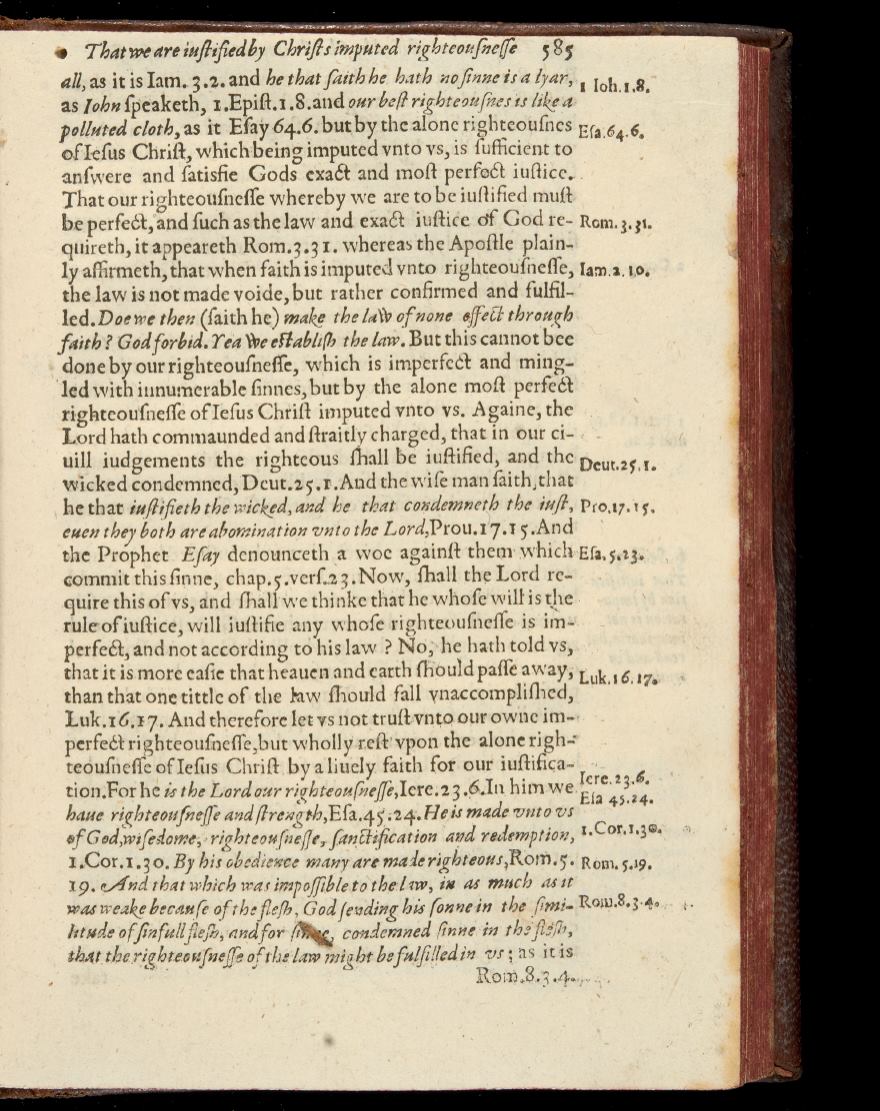 That we are iuſtified by Chriſts imputed righteouſneſſe 585
all, as it is Iam. 3.2. and he that ſaith he hath no ſinne is a lyar,
1 Ioh.1.8.
as Iohn ſpeaketh, 1.Epiſt.1.8. and our beſt righteouſnes is like a
polluted cloth, as it Eſay 64.6. but by the alone righteouſnes
Eſa.64.6.
of Ieſus Chriſt, which being imputed vnto vs, is ſufficient to
anſwere and ſatisfie Gods exact and moſt perfect iuſtice.
That our righteouſneſſe whereby we are to be iuſtified muſt
be perfect, and ſuch as the law and exact iuſtice of God re-
Rom.3.31.
quireth, it appeareth Rom.3.31. whereas the Apoſtle plain-
ly affirmeth, that when faith is imputed vnto righteouſneſſe,
Iam.2.10.
the law is not made voide, but rather confirmed and fulfil-
led. Doe we then (ſaith he) make the law of none effect through
faith? God forbid. Yea we eſtabliſh the law. But this cannot bee
done by our righteouſneſſe, which is imperfect and ming-
led with innumerable ſinnes, but by the alone moſt perfect
righteouſneſſe of Ieſus Chriſt imputed vnto vs. Againe, the
Lord hath commaunded and ſtraitly charged, that in our ci-
uill iudgements the righteous ſhall be iuſtified, and the
Deut.25.1.
wicked condemned, Deut.25.1. And the wiſe man ſaith, that
he that iuſtifieth the wicked, and he that condemneth the iuſt,
Pro.17.15.
euen they both are abomination vnto the Lord, Prou.17.15. And
the Prophet Eſay denounceth a woe againſt them which
Eſa.5.23.
commit this ſinne, chap.5.verſ.23. Now, ſhall the Lord re-
quire this of vs, and ſhall we thinke that he whoſe will is the
rule of iuſtice, will iuſtifie any whoſe righteouſneſſe is im-
perfect, and not according to his law? No, he hath told vs,
that it is more eaſie that heauen and earth ſhould paſſe away,
Luk.16.17.
than that one tittle of the law ſhould fall vnaccompliſhed,
Luk.16.17. And therefore let vs not truſt vnto our owne im-
perfect righteouſneſſe, but wholly reſt vpon the alone righ-
teouſneſſe of Ieſus Chriſt by a liuely faith for our iuſtifica-
Iere.23.6.
tion. For he is the Lord our righteouſneſſe, Iere.23.6. In him we
Eſa 45.24.
haue righteouſneſſe and ſtrength, Eſa.45.24. He is made vnto vs
of God, wiſedome, righteouſneſſe, ſanctification and redemption,
1.Cor.1.30.
1.Cor.1.30. By his obedience many are made righteous, Rom.5.
Rom.5.19.
19. And that which was impoſſible to the law, in as much as it
was weake becauſe of the fleſh, God ſending his ſonne in the ſimi-
Rom.8.3.4.
litude of ſinfull fleſh, and for ſinne, condemned ſinne in the fleſh,
that the righteouſneſſe of the law might be fulfilled in vs; as it is
Rom.8.3.4.